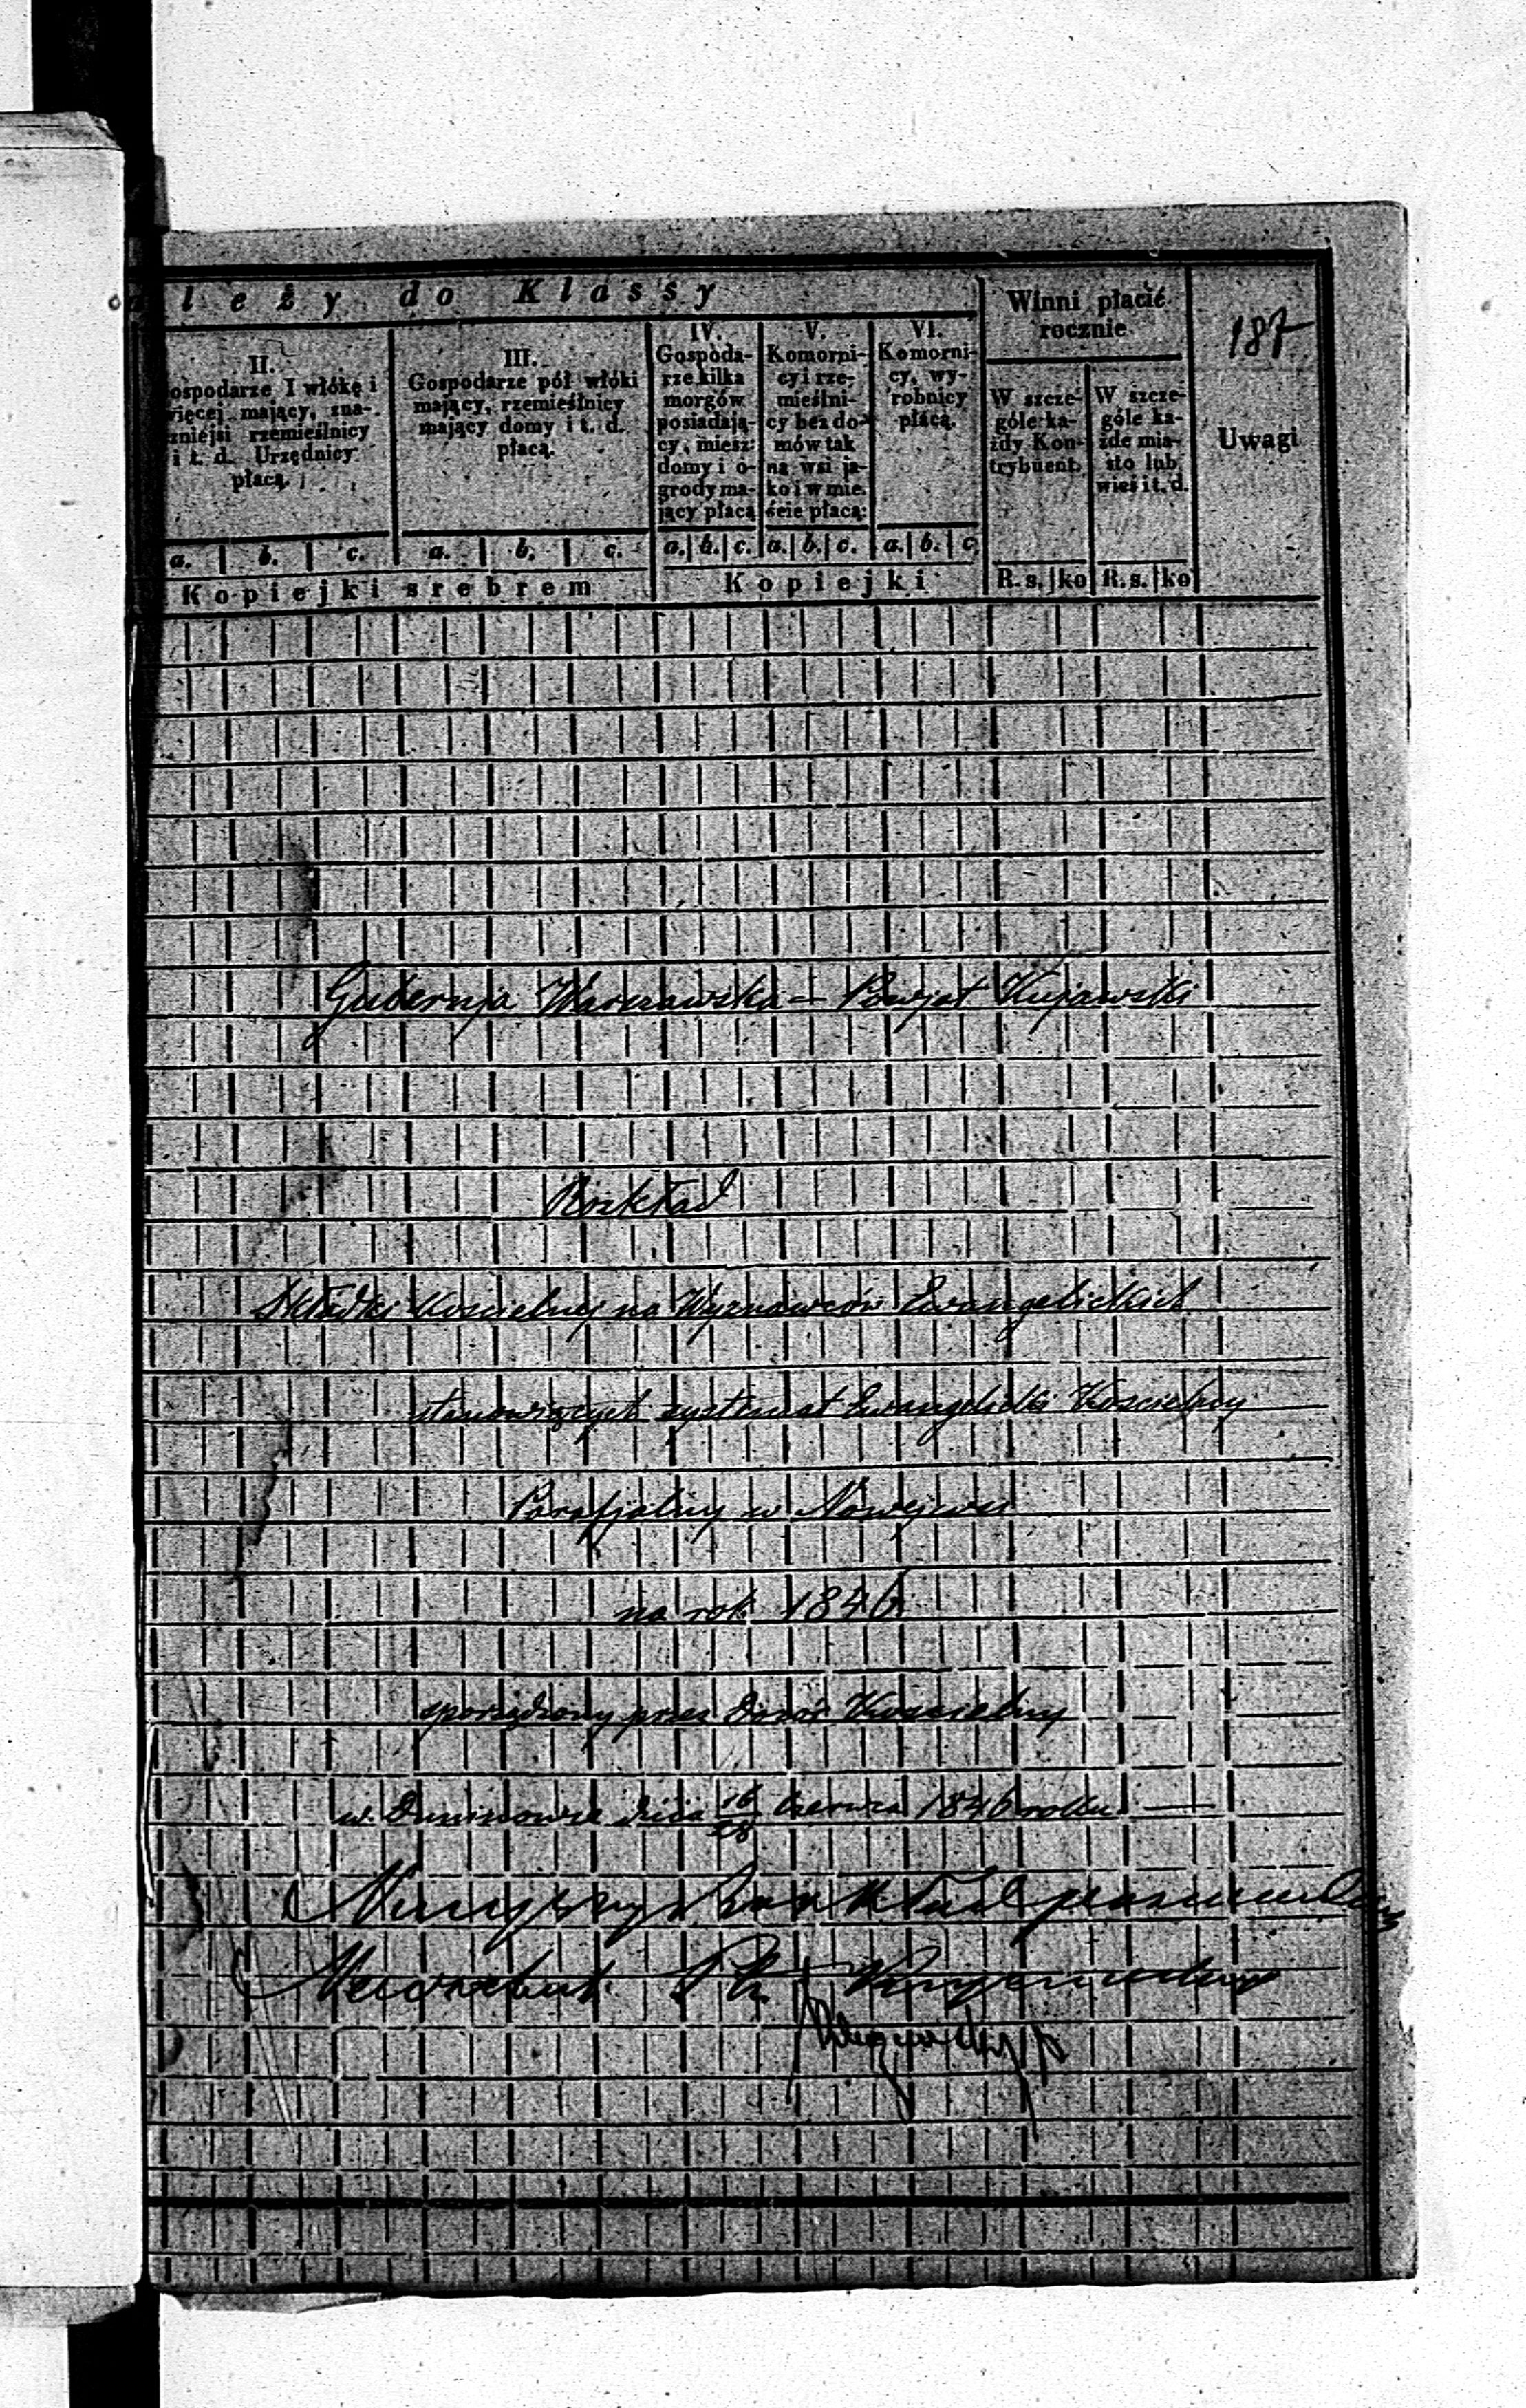 leży do Klassy
Winni płacić
rocznie
187
II.
ospodarze I włókę i
więcej mający, zna-
zniejsi rzemieślnicy
i t. d. Urzędnicy
płacą.
III.
Gospodarze pół włóki
mający, rzemieślnicy
mający domy i t. d.
płacą.
IV.
Gospoda-
rze kilka
morgów
posiadają-
cy, miesz:
domy i o-
grody ma-
jący płacą
V.
Komorni-
cy i rze-
mieślni-
cy bez do-
mów tak
na wsi ja-
ko i w mie-
ście płacą:
VI.
Komorni-
cy, wy-
robnicy
płacą.
W szcze-
góle ka-
żdy Kon-
trybuent.
W szcze-
góle ka-
żde mia-
sto lub
wieś i t. d.
Uwagi
a. b. c. a. b. c. a. b. c. a. b. c. a. b. c.
Kopiejki srebrem Kopiejki R. s. ko R. s. ko
Gubernja Warszawska – Powjat Kujawski
Rozkład
Składki Kościelnej na Wyznawców Ewangelickich
stanowiących system at Ewangelicki Kościelny
Parafjalny w Nowejwsi
na rok 1846
sporządzony przez Dozór Kościelny
w Duninowie dnia 16/28 Czerwca 1846 roku